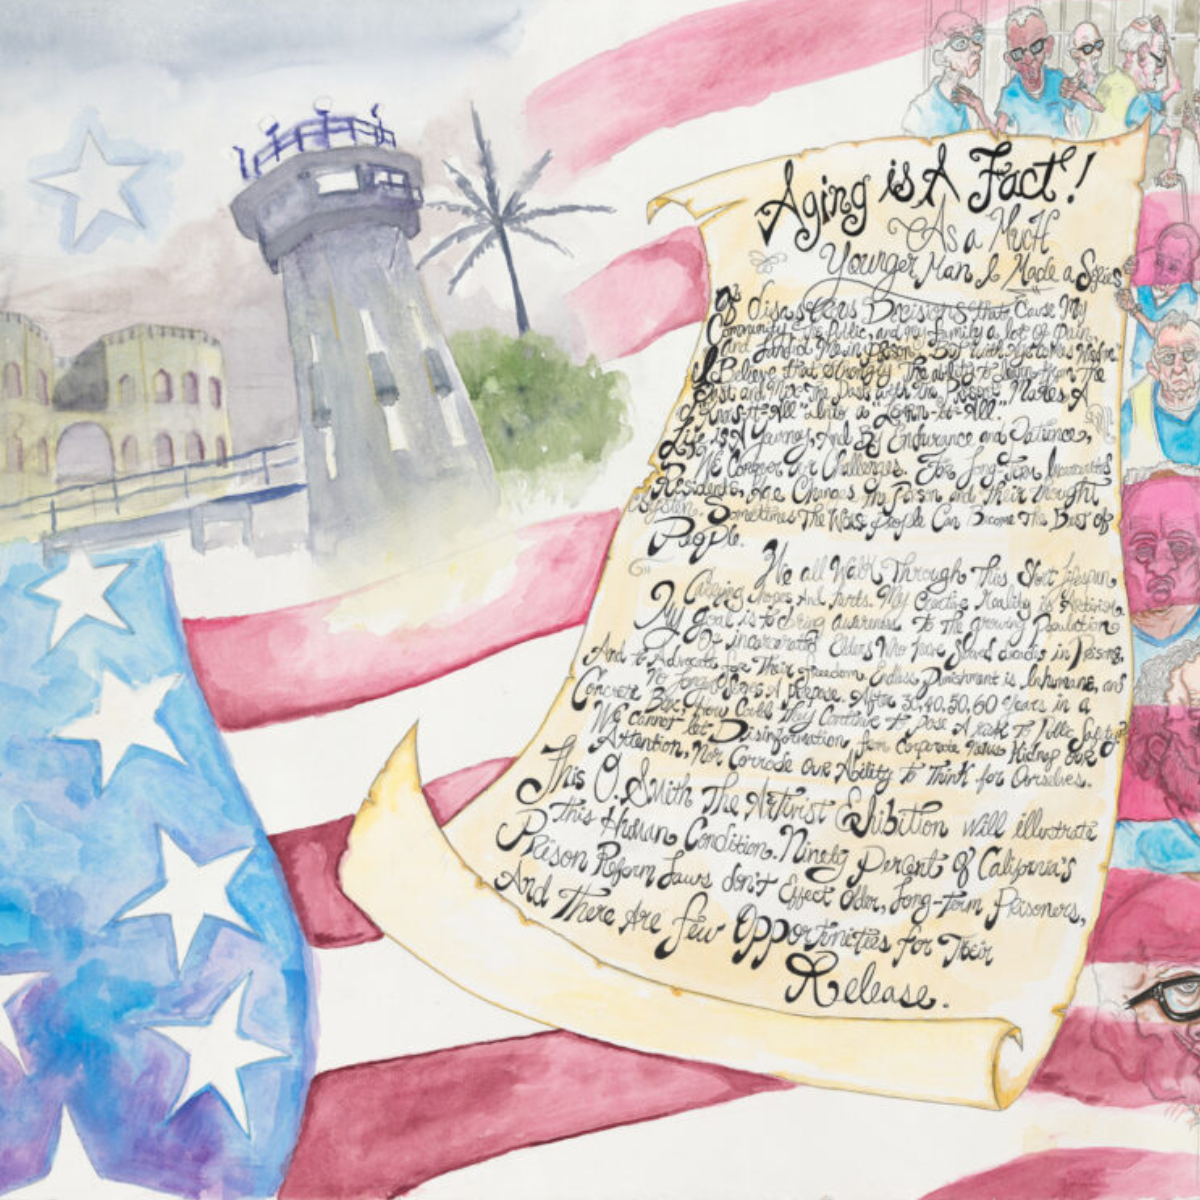 Aging is A Fact!
As a Much
Younger Man I Made a Series
Of disastrous Decisions that Cause My
Community, The Public, and my Family a lot of Pain,
And Landed Me in prison. But With Age Comes Wisdom.
I Believe that strongly. The ability to learn from the
Past and Mix The Past with the Present, Makes A
"Knows-it-All" into a "Learn-it-All"
Life is A Journey, And By Endurance and Patience,
We Conquer our Challenges. For Long-Term Incarcerated
Residents, Age Changes The Person and Their thought
System. Sometimes The Worst People Can Become The Best of
People.
We all Walk Through this Short lifespan
Carrying hopes And hurts. My Creative Reality is Activism.
My goal is to bring awareness To The growing Population
Of incarcerated Elders Who have Served decades in Prison,
And to Advocate for Their Freedom. Endless Punishment is Inhumane, and
No longer Serves A purpose. After 30, 40, 50, 60 years in a
Concrete Box, How Could They Continue to pose A risk To Public Safety?
We cannot let Disinformation from Corporate News Kidnap our
Attention, Nor Corrode our Ability to Think for Ourselves.
This O. Smith The Artivist Exhibition will illustrate
This Human Condition. Ninety Percent of California's
Prison Reform Laws don't Effect Older, Long-term Prisoners,
And There Are few Opportunities for Their
Release.